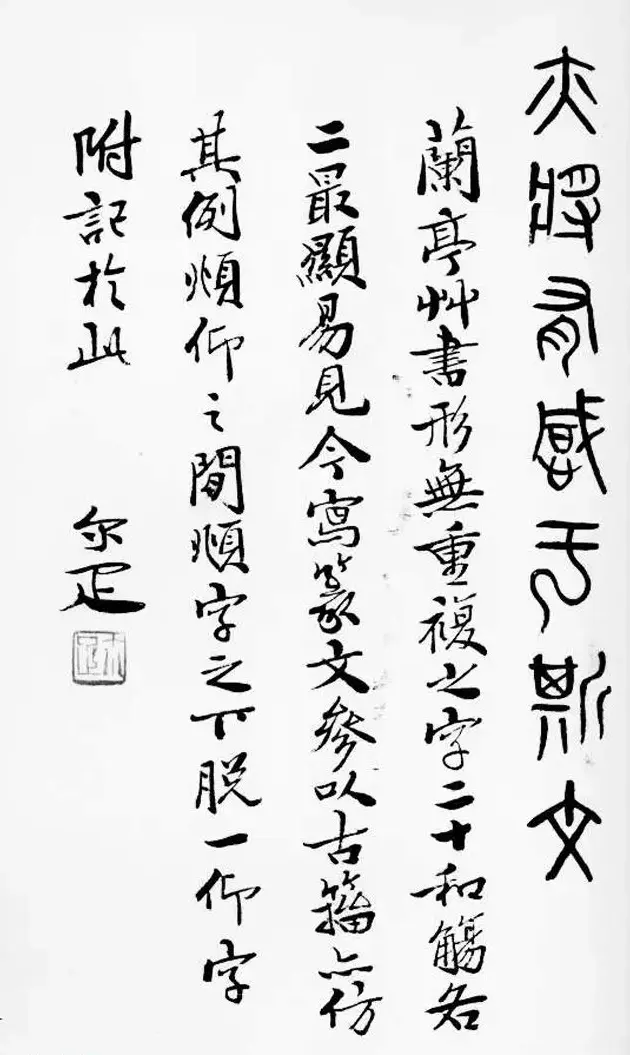 亦將有感于斯文
蘭亭艸書形無重複之字二十和觴各
二最顯易見今寫篆文參以古籀亦仿
其例頫仰之間頫字之下脫一仰字
附記於此 尔疋